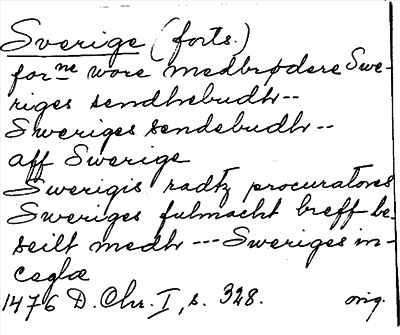 Sverige (forts.)
forne wore medbrødere Swe-
riges sendhebudh--
Sweriges sendebudh--
aff Swerige
Swerigis radtz procuratores
Sweriges fulmacht breff be-
seilt medh --- Sweriges in-
ceglæ
1476 D. Chr. I, s. 328. orig.